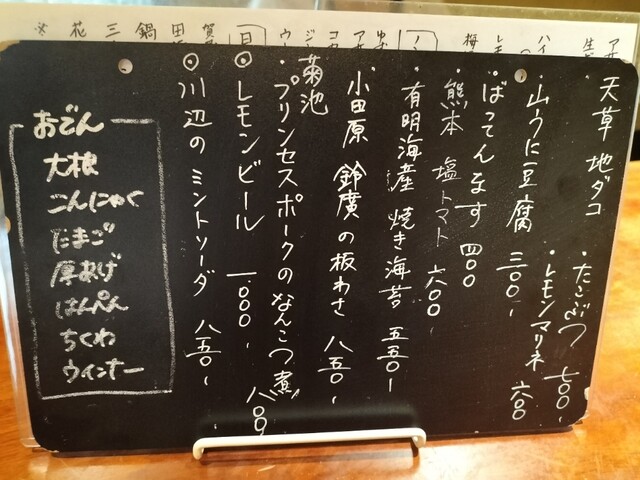 天草 地ダコ
・たこぶつ 七〇〇-
・レモンマリネ 六〇〇
・山うに豆腐 三〇〇-
ばってんなす 四〇〇
・熊本 塩トマト 六〇〇-
・有明海産 焼き海苔 五五〇-
・小田原 鈴廣の板わさ 八五〇-
菊池
・プリンセスポークのなんこつ煮 八〇〇
◎レモンビール 一、〇〇〇-
◎川辺のミントソーダ 八五〇-
おでん
大根
こんにゃく
たまご
厚あげ
はんぺん
ちくわ
ウインナー